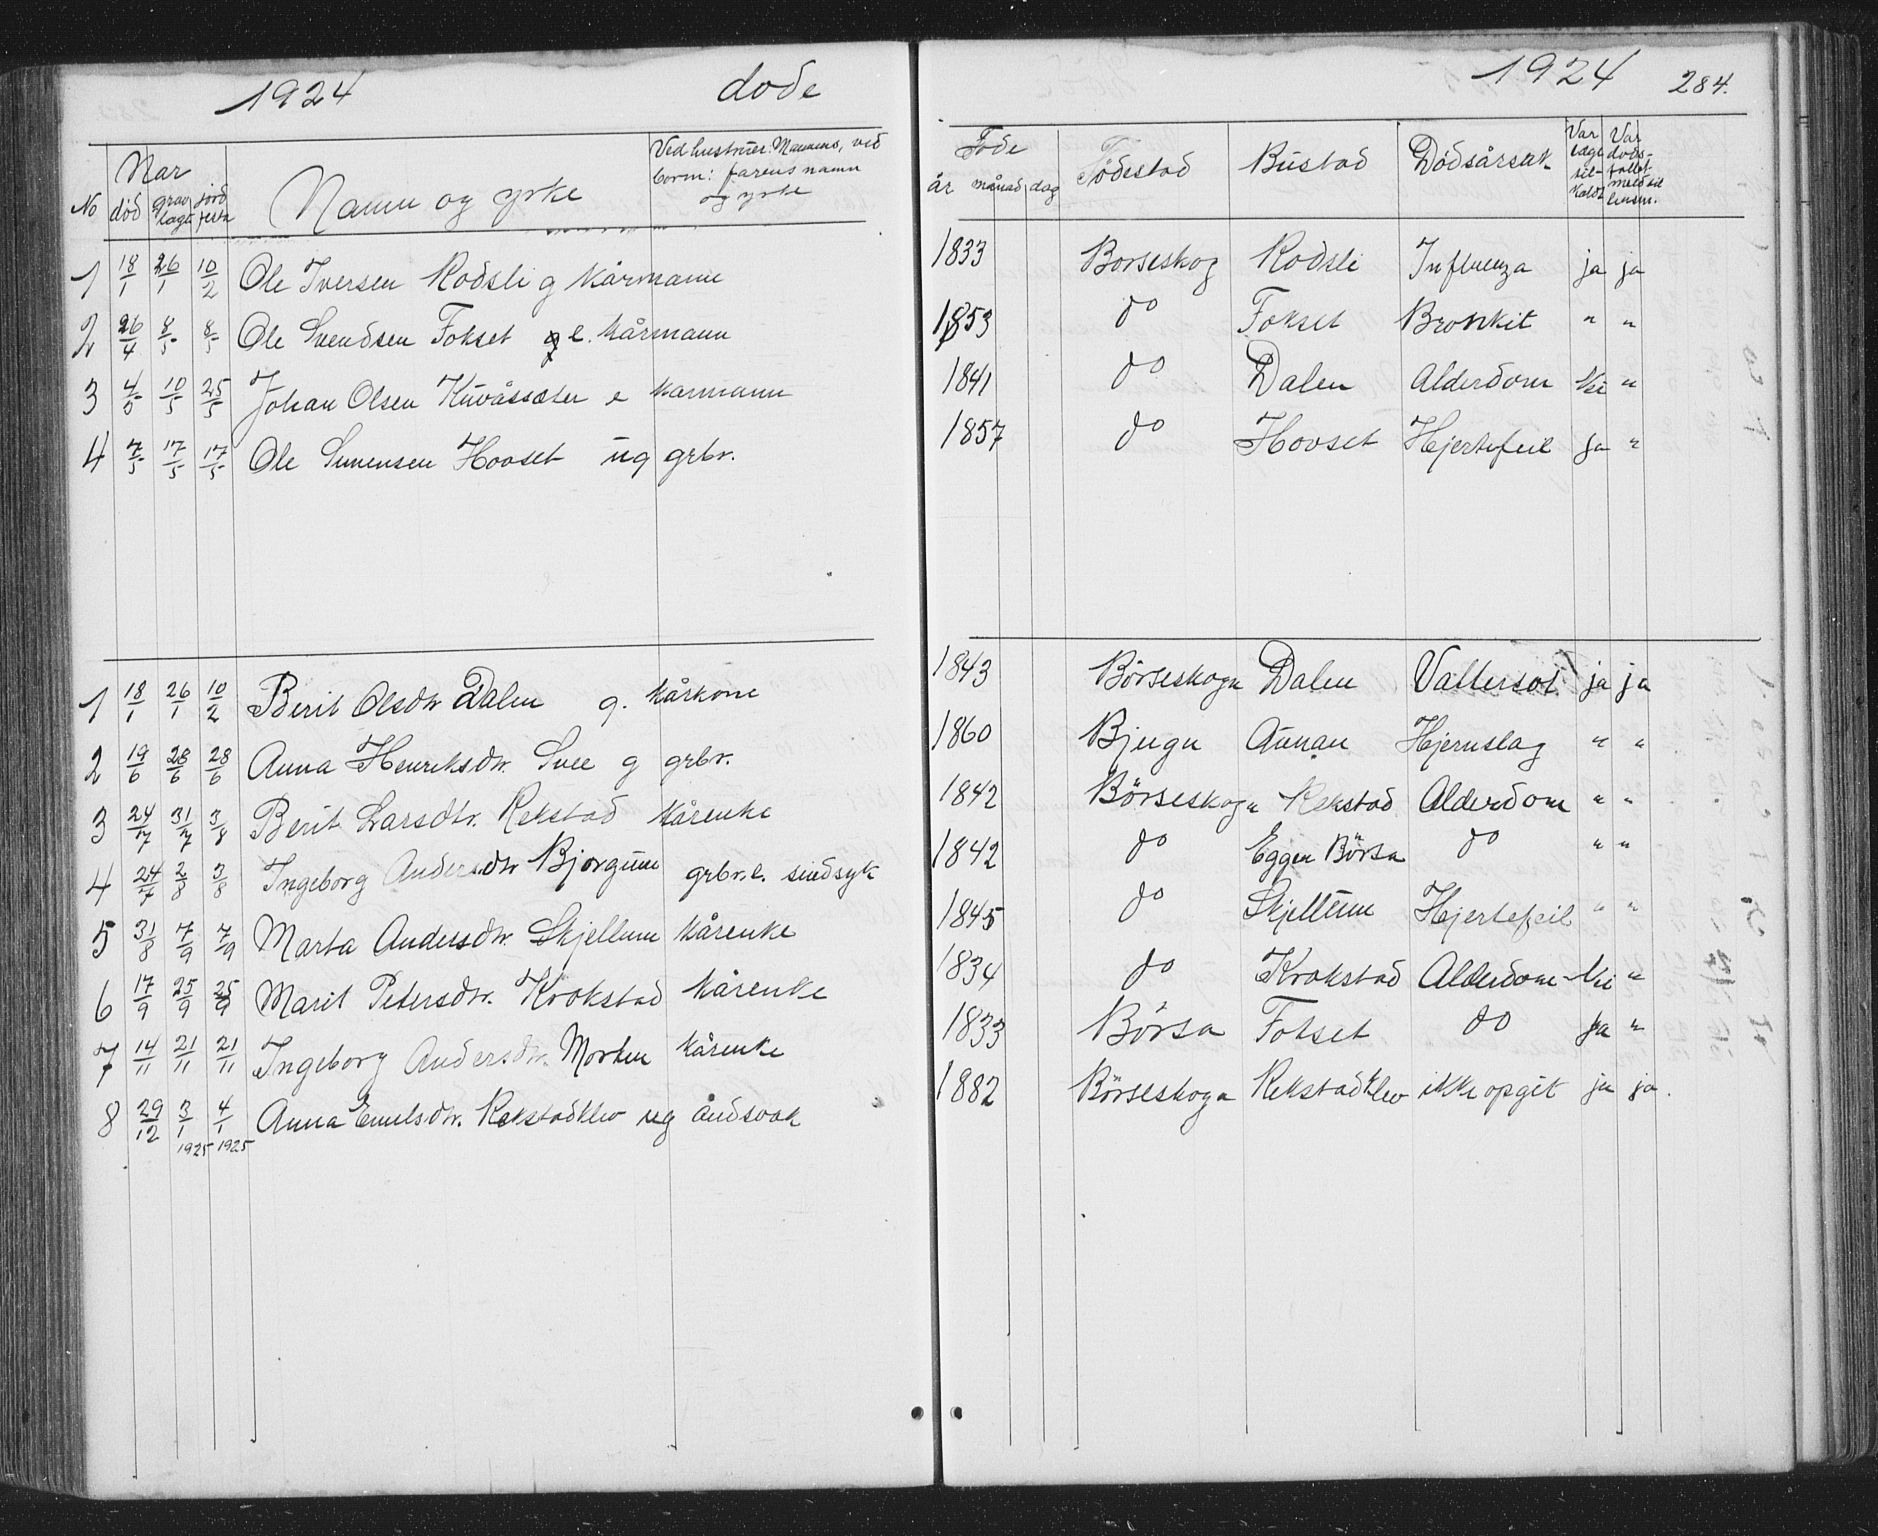 1924 døde 1924 284.
No Nar død grav lagt jord festa Namn og yrke Ved hustruer: Mannens, ved born: farens namn og yrke Føde år månad dag Fødestad Bustad Dødsårsak Var læge tilkaldt Var døds- fallet meld til lensm.
1 18/1 26/1 10/2 Ole Iversen Rodsli g kårmann 1833 Borseskog Rodsli Influenza ja ja
2 26/4 8/5 8/5 Ole Svendsen Fokset e. kårmann 1853 do Fokset Bronkit " "
3 4/5 10/5 25/5 Johan Olsen Kuvåssæter e karmann 1841 do Dalen Alderdom Nei "
4 7/5 17/5 17/5 Ole Simensen Hovset ug grbr. 1857 do Hovset Hjertefeil Ja "
1 18/1 26/1 10/2 Berit Olsdtr Dalen g. kårkone 1843 Børseskogn Dalen Vattersot ja ja
2 19/6 28/6 28/6 Anna Henriksdtr. Svee g grbr. 1860 Bjugn Aunan Hjernslag " "
3 24/7 31/7 3/8 Berit Larsdtr. Rekstad kårenke 1842 Børseskogn Rekstad Alderdom " "
4 24/7 2/8 3/8 Ingeborg Andersdtr Bjørgum grbr.e. sindsyk 1842 do Eggen Børsa do " "
5 31/8 7/9 7/9 Marta Andersdtr. Skjellum kårenke 1845 do Skjellum Hjertefeil " "
6 17/9 25/9 25/9 Marit Petersdtr. Krokstad kårenke 1834 do Krokstad Alderdom Nei "
7 14/11 21/11 21/11 Ingeborg Andersdtr. Morken kårenke 1833 Børsa Fokset do ja "
8 29/12 3/1 1925 4/1 1925 Anna Emelsdtr. Rekstadklev ug åndsvak 1882 Børseskogn Rekstadklev ikke opgit ja ja.